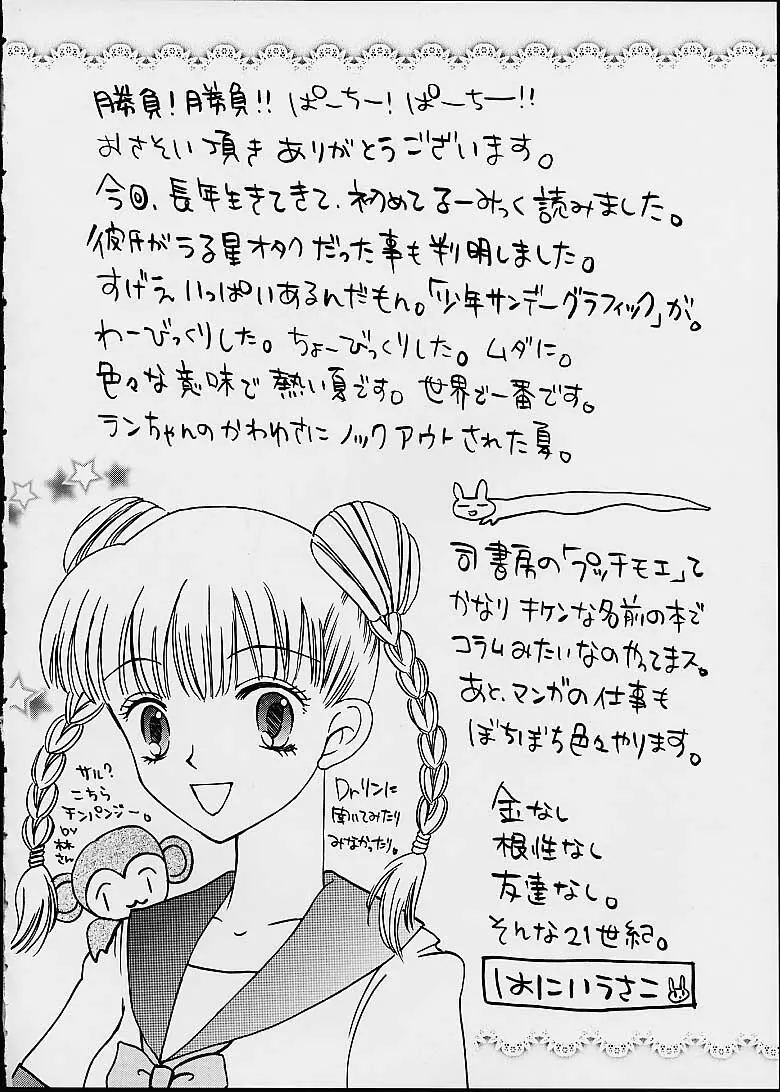 勝負!勝負!!ぱーちー!ぱーちー!!
おさそい頂きありがとうございます。
今回、長年生きてきて、初めてるーみっく読みました。
彼氏がうる星オタクだった事も判明しました。
すげえいっぱいあるんだもん。「少年サンデーグラフィック」が。
わーびっくりした。ちょーびっくりした。ムダに。
色々な意味で熱い夏です。世界で一番です。
ランちゃんのかわゆさにノックアウトされた夏。
司書房の「プッチモエ」て
かなりキケンな名前の本で
コラムみたいなのやってまス。
あと、マンガの仕事も
ぼちぼち色々やります。
サル?
こちら
チンパンジー。
by
林さん
Dr.リンに
聞いてみたり
みなかったり。
金なし
根性なし
友達なし。
そんな21世紀。
はにいうさこ